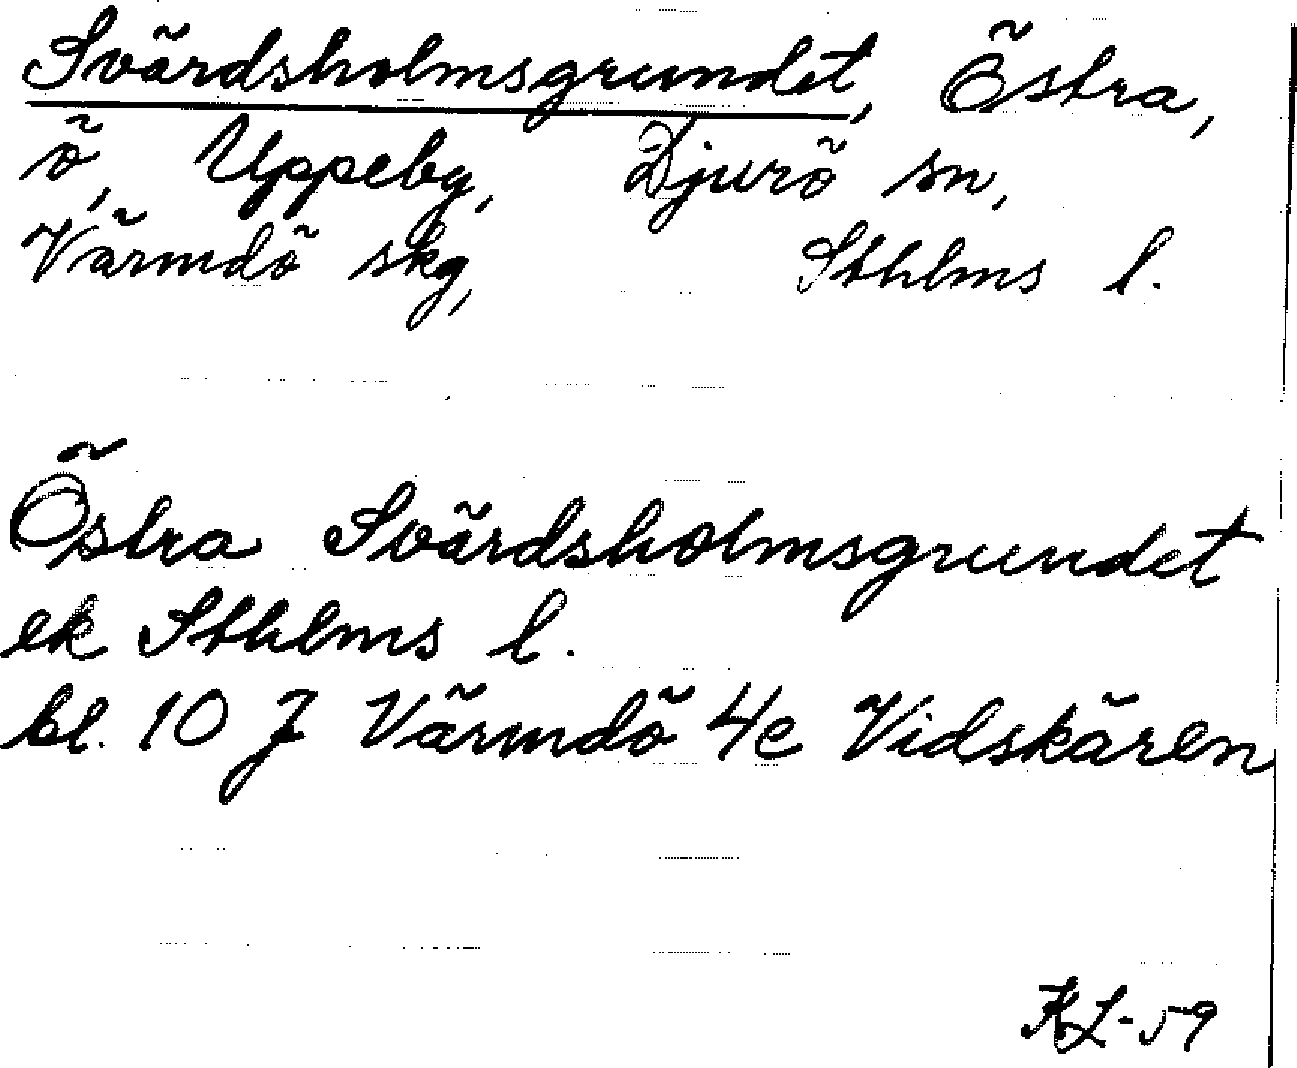 Svärdsholmsgrundet, Östra,
ö, Uppeby, Djurö sn,
Värmdö skg, Sthlms l.
Östra Svärdsholmsgrundet
ek Sthlms l.
bl. 10 J Värmdö 4e Vidskären
KL-59